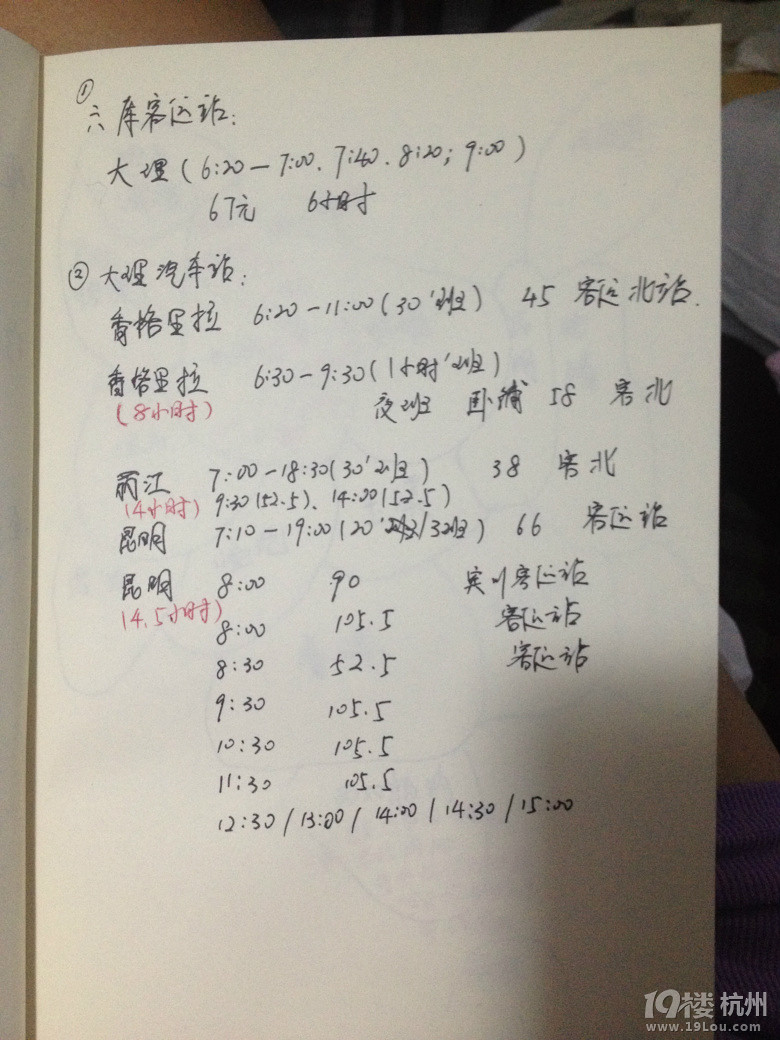 ①
六库客运站:
大理(6:20—7:00、7:40、8:20; 9:00)
67元 6小时
② 大理汽车站:
香格里拉 6:20-11:00(30'班) 45 客运北站.
香格里拉 6:30-9:30(1小时'班)
(8小时) 夜班 卧铺 58 客北
丽江 7:00-18:30(30'班) 38 客北
(4小时) 9:30(52.5)、14:00(52.5)
昆明 7:10-19:00(20'班/32班) 66 客运站
昆明 8:00 90 宾川客运站
(4.5小时)
8:00 105.5 客运站
8:30 52.5 客运站
9:30 105.5
10:30 105.5
11:30 105.5
12:30/13:00/14:00/14:30/15:00
19楼 杭州
www.19Lou.com